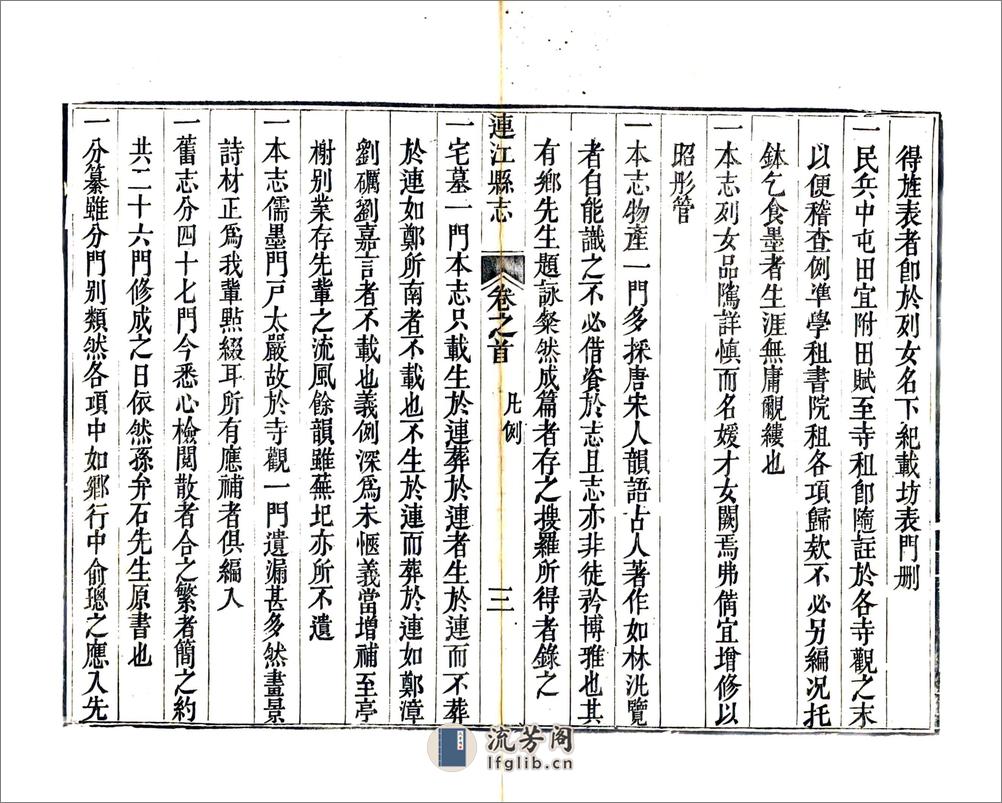 得旌表者卽於列女名下紀載坊表門删
一民兵中屯田宜附田賦至寺租卽隨註於各寺觀之末
以便稽查例準學租書院租各項歸欵不必另編况托
鉢乞食墨者生涯無庸覼縷也
一本志列女品隲詳慎而名媛才女闕焉弗備宜增修以
昭彤管
一本志物產一門多採唐宋人韻語古人著作如林洗覽
者自能識之不必借資於志且志亦非徒矜博雅也其
有鄉先生題詠粲然成篇者存之搜羅所得者錄之
連江縣志 卷之首 凡例 三
一宅墓一門本志只載生於連葬於連者生於連而不葬
於連如鄭所南者不載也不生於連而葬於連如鄭漳
劉礪劉嘉言者不載也義例深爲未愜義當增補至亭
榭别業存先輩之流風餘韻雖蕪圯亦所不遺
一本志儒墨門戸太嚴故於寺觀一門遺漏甚多然畫景
詩材正爲我輩㸃綴耳所有應補者俱編入
一舊志分四十七門今悉心檢閱散者合之繁者簡之約
共二十六門修成之日依然孫弁石先生原書也
一分纂雖分門别類然各項中如鄉行中俞璁之應入先
流芳阁
lfglib.cn